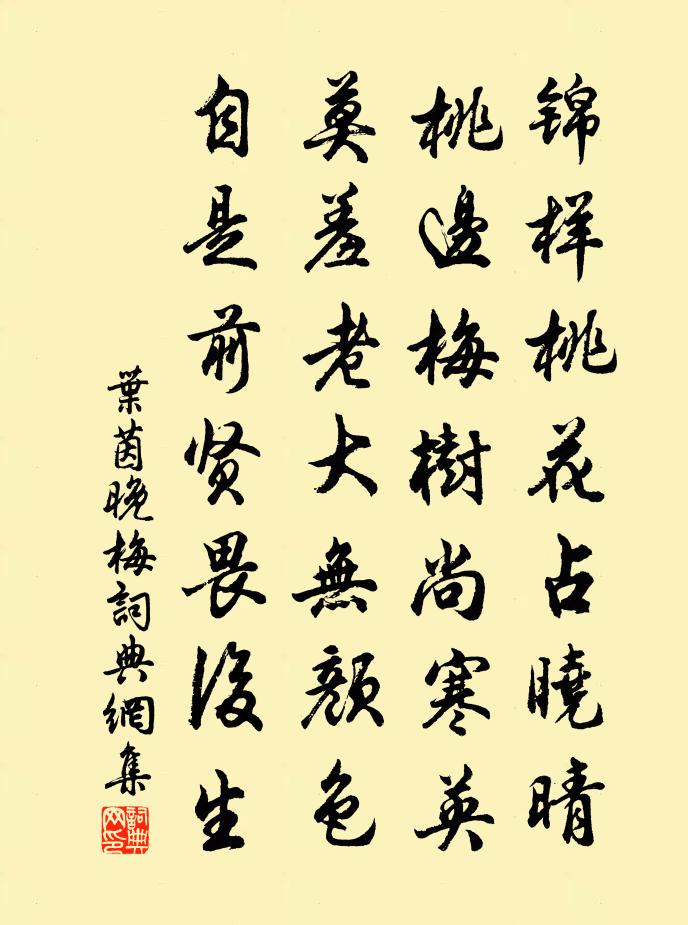 锦样桃花占曉晴
桃邊梅樹尚寒英
莫羞老大無顏色
自是前贤畏後生
葉茵晚梅詞典網集
詞典网印